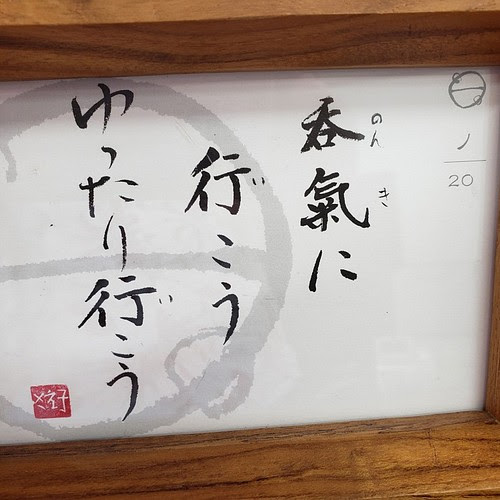 呑氣に
のん き
行こう
い
ゆったり行こう
い
20